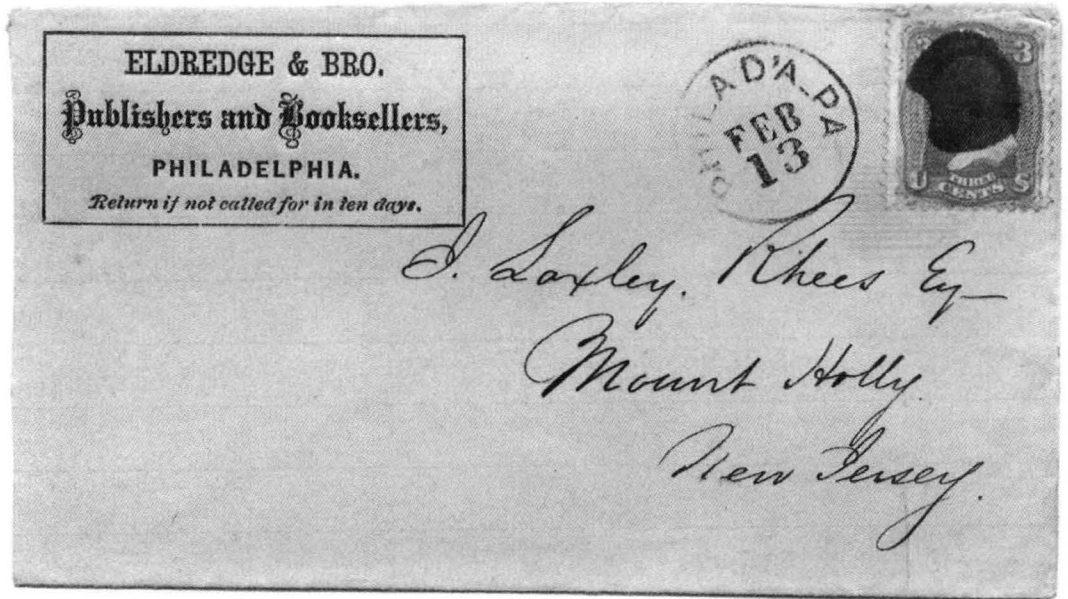 ELDREDGE & BRO.
Publishers and Booksellers,
PHILADELPHIA.
Return if not called for in ten days.
PHILAD'A_PA
FEB
13
3 3
U S
THREE
CENTS
J. Loxley. Rhees Esq—
Mount Holly.
New Jersey.